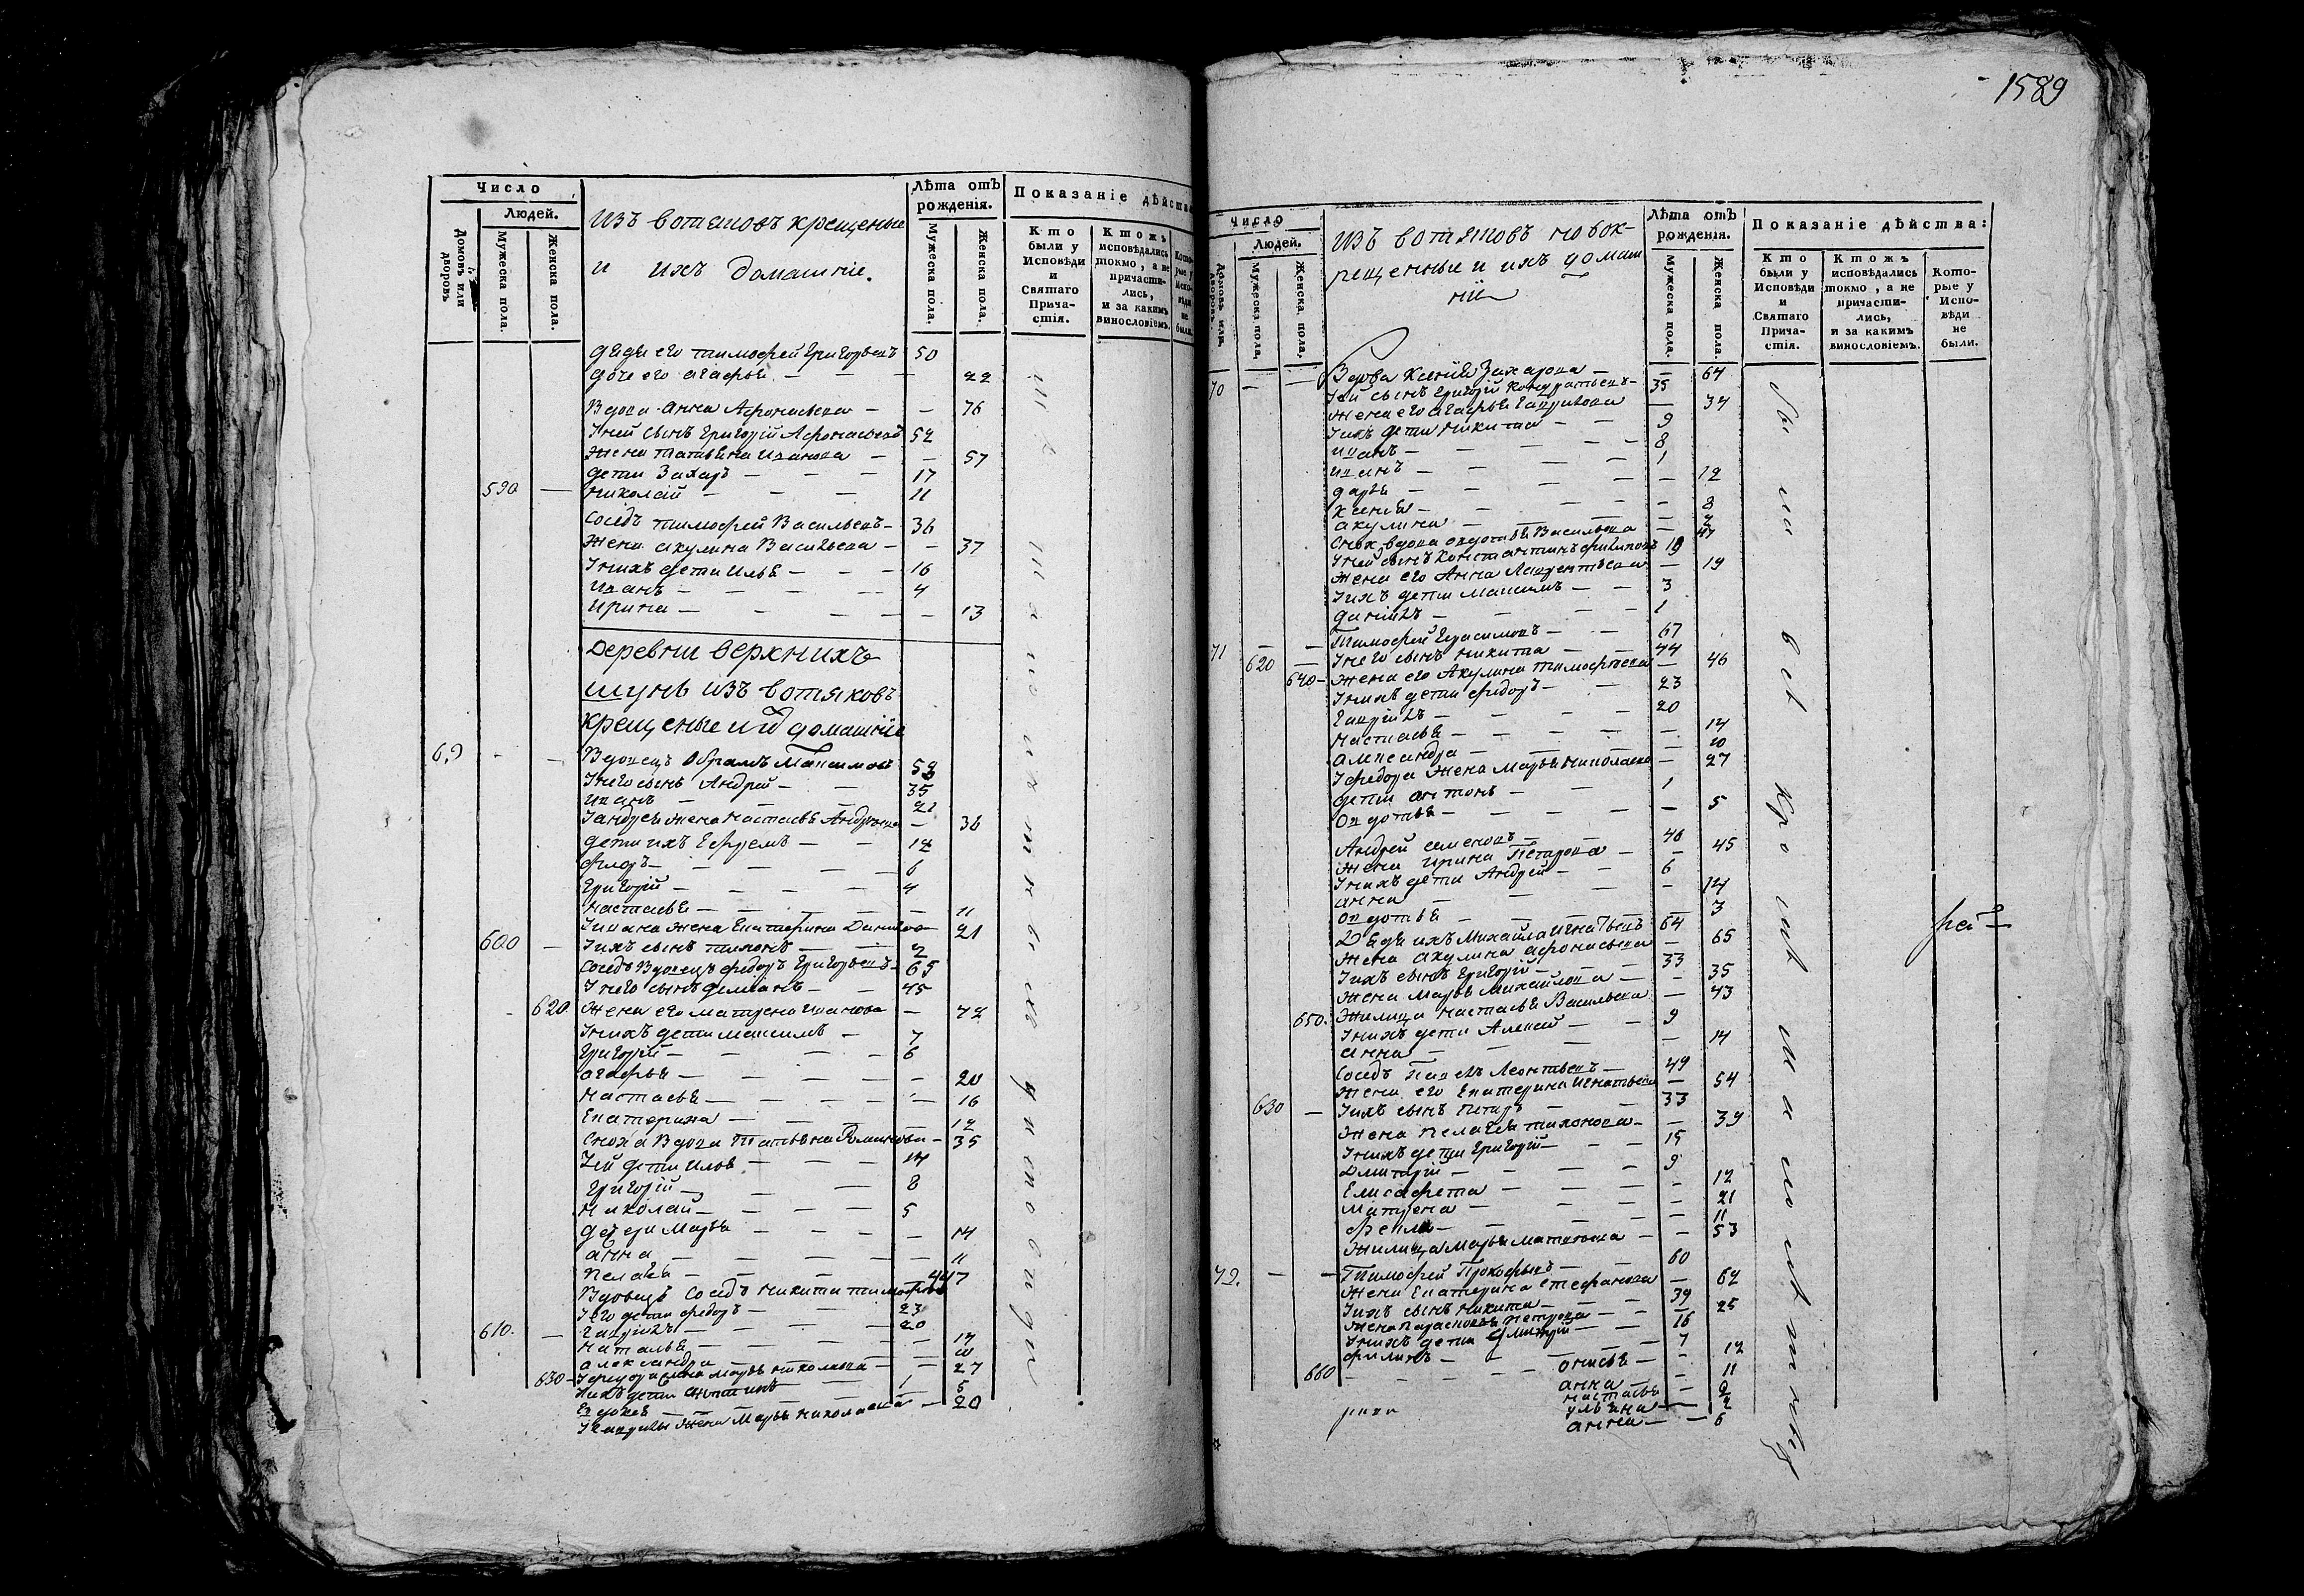 1589
Число
Людей.
Домовъ или дворовъ
Мужеска пола.
Женска пола.
Изъ вотяковъ крещеные
и ихъ домашніе.
Лѣта отъ рожденія.
Мужеска пола.
Женска пола.
Показаніе дѣйства
Кто были у Исповѣди и Святаго Прича-стія.
Ктожъ исповѣдались токмо, а не причасти-лись, и за какимъ винословіемъ.
Кото-рые у Испо-вѣди не были.
дядя его тимофей Григорьевъ 50
дочь его агафья — — — 22
Вдова Анна Афонасьева — — 76
У ней сынъ Григорій Афонасьевъ 52
Жена татьяна Иванова — — 57
дети Захаръ — — — 17
590 — николай — — — 11
Соседъ тимофей Васильевъ — 36
Жена акулина Васильева — — 37
У нихъ дети Илья — — — 16
Иванъ — — — — 4
Ирина — — — — 13
Деревни верхнихъ
шунь изъ вотяковъ
крещеные и их домашніе
69 — — Вдовецъ Абрамъ Максимовъ 58
У него сынъ Андрей — — 35
Иванъ — — — 21
У андрея жена настасья Андреева — 36
дети ихъ Ефремъ — — 12
флоръ — — — — 6
Григорій — — — — 4
настасья — — — — 11
У ивана жена Екатерина Данилова — 21
600 — У нихъ сынъ тихонъ — — 2
Соседъ Вдовецъ федоръ Григорьевъ — 65
У него сынъ демианъ — — 45
620 Жена его матрена Иванова — 42
У нихъ дети максимъ — 7
Григорій — — — — 6
агафья — — — — — 20
настасья — — — — — 16
Екатерина — — — — 12
Сноха Вдова татьяна Романова — 35
У ей дети Илья — — — 14
Григорій — — — 8
николай — — — 5
дочери Марья — — — — 14
анна — — — — — 11
пелагея — — — — 7
Вдовецъ соседъ никита тимофеевъ 44
У его дети федоръ — — 23
610. — гаврилъ — — — 20
наталья — — — — 14
александра — — — — 10
630 — У федора жена марья николаева — — 27
У нихъ дети антипъ — — 1
Евдокея — — — — 5
У гаврилы жена Марья николаева — 20
Число
Людей.
Домовъ или дворовъ.
Мужеска пола,
Женска пола,
Изъ вотяковъ новок-
рещенные и ихъ домаш
ніе
Лѣта отъ рожденія.
Мужеска пола.
Женска пола.
Показаніе дѣйства:
Кто были у Исповѣди и Святаго Прича-стія.
Ктожъ исповѣдались токмо, а не причасти-лись, и за какимъ винословіемъ.
Кото-рые у Испо-вѣди не были.
70 — — Вдова Ксенія Захарова — — 64
У ей сынъ Григорій Кондратьевъ — 35
жена его агафья гаврилова — 34
У нихъ дети никита — — 9
иванъ — — — — 8
иванъ — — — — 1
дарья — — — — 12
ксенія — — — — 8
акулина — — — — 2
Сноха вдова авдотья Васильева — 47
У ней сынъ Константинъ филиповъ 19
жена его Анна Лаврентьева — 19
У нихъ дети максимъ — — 3
данилъ — — — — 1
71 — — Тимофей Герасимовъ — — 67
620 — У него сынъ никита — — 44
640 — жена его Акулина тимофеева — 46
У нихъ дети федоръ — — 23
гаврилъ — — — — 20
настасья — — — — — 14
александра — — — — 10
У федора жена марья николаева — 27
дети антонъ — — 1
Овдотья — — — — 5
Андрей семеновъ — — 46
жена ирина Петрова — — 45
У нихъ дети Андрей — — 6
анна — — — — 14
Овдотья — — — — 3
Дядя ихъ Михайла Игнатьевъ 64
жена акулина афонасьева — 65
У нихъ сынъ Григорій — — 33
жена марья михайлова — — 35
650. Жилица настасья Васильева — 43
У нихъ дети Алексей — — 9
анна — — — — 14
Соседъ Павелъ Леонтьевъ — 49
жена его Екатерина Игнатьева — 54
630 — У нихъ сынъ петръ — — 33
жена пелагея тихонова — — 39
У нихъ дети Григорій — — 15
Дмитрій — — — — 9
Елисафета — — — — 12
матрена — — — — 21
фекла — — — — 11
жилица марья матвеева — — 53
72. — — Тимофей Прокофьевъ — — 60
жена Екатерина Стефанова — 62
У нихъ сынъ никита — — 39
жена парасковья петрова — — 25
У нихъ дети дмитрій — — 16
филипъ — — — 7
660 — — — — онисья — — 12
анна — — 11
настасья — 9
ульяна — 2
анна — — 6